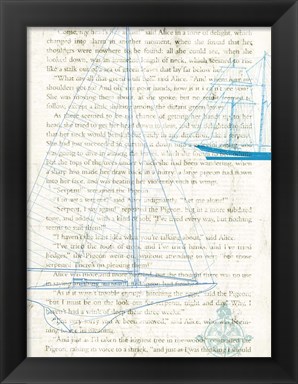 Come, my head's free at last!" said Alice in a tone of delight, which
changed into alarm in another moment, when she found that her
shoulders were nowhere to be found: all she could see, when she
looked down, was an immense length of neck, which seemed to rise
like a stalk out of a sea of green leaves that lay far below
"What can all that green stuff be?" said Alice. "And where have my
shoulders got to? And oh, my poor hands, how is it I can't see you?"
She was moving them about as she spoke, but no result seemed to
follow, except a little shaking among the distant green leaves.
As there seemed to be no chance of getting her hands up to her
head, she tried to get her head down to them, and was delighted to find
that her neck would bend
She had just succeeded in
going to dive in among
but the tops of the trees under which she had been wandering, when
a sharp hiss made her draw back in a hurry: a large pigeon had flown
into her face, and was beating her violently with its wings.
"Serpent!" screamed the Pigeon.
"I'm not a serpent!" said Alice
"Serpent, I say again!" repeated the Pigeon, but in a more subdued
tone, and added with a kind of sob, "I've tried every way, but nothing
seems to suit them!"
"I haven't the least idea what you're talking about," said Alice.
"I've tried the roots of trees, and I've tried banks, and I've tried
hedges," the Pigeon went on, without attending to her; "but those
serpents! There's no pleasing them!"
Alice was more and more puzzled, but she thought there was no use
in saying anything more till the Pigeon had finished.
"As if it wasn't trouble enough hatching the eggs," said the Pigeon;
"but I must be on the look-out for serpents night and day! Why, I
haven't had a wink of sleep these three weeks!"
"I'm very sorry you've been annoyed," said Alice, who was
beginning to see its meaning.
"And just as I'd taken the highest tree in the wood," continued the
Pigeon, raising its voice to a shriek, "and just as I was thinking I should